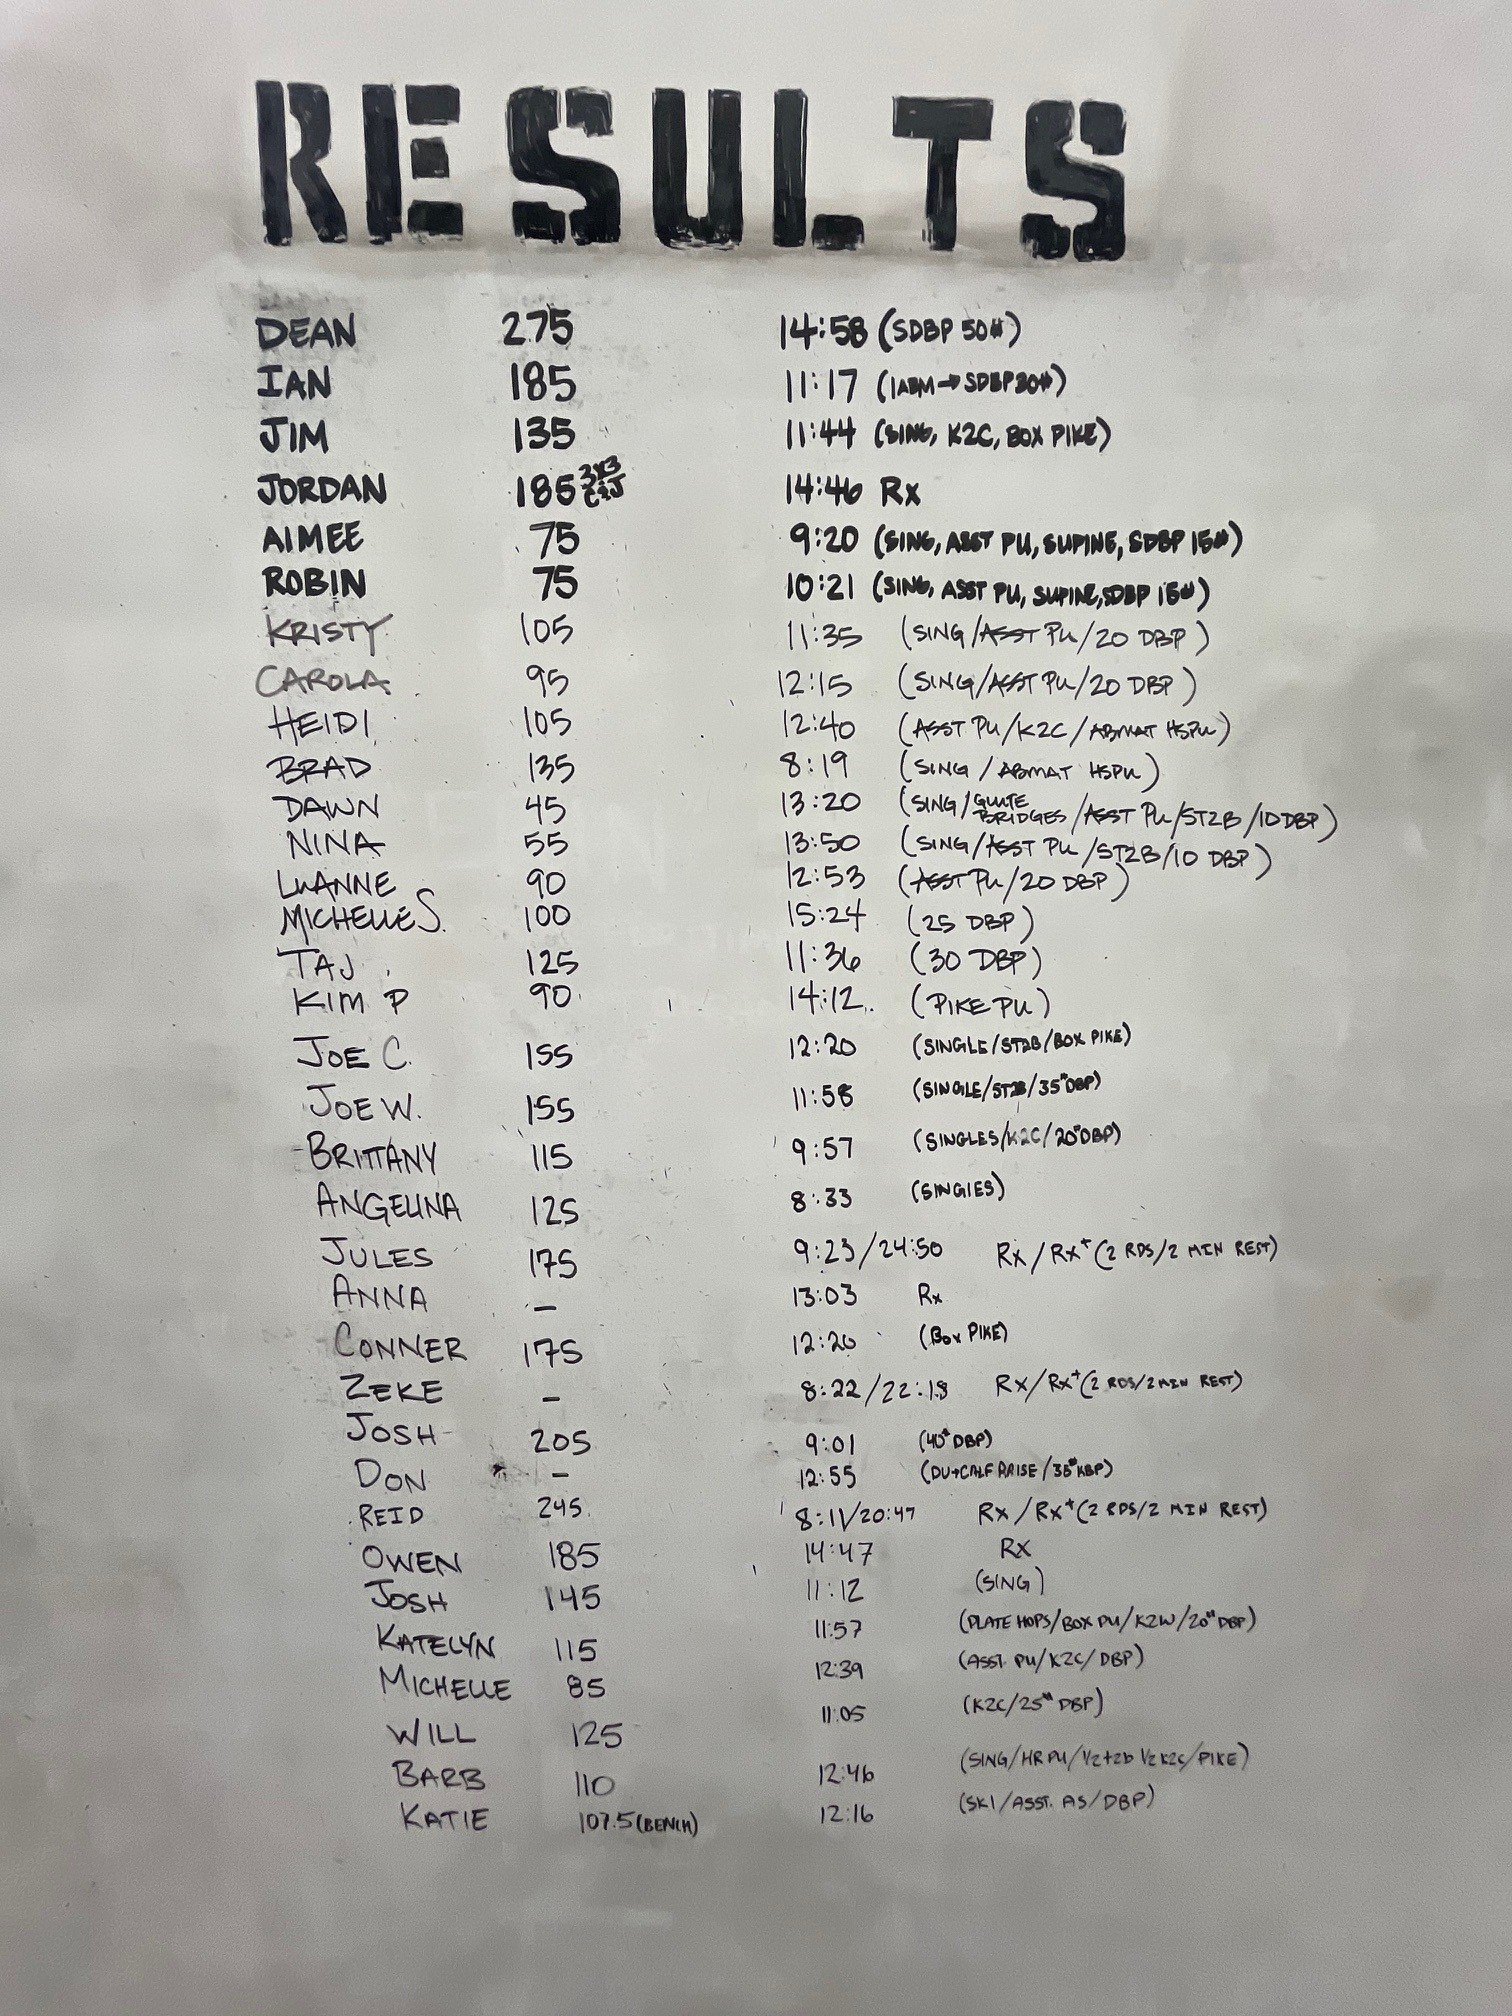 RESULTS
DEAN 275 14:58 (SDBP 50#)
IAN 185 11:17 (1ABM→SDBP 30#)
JIM 135 11:44 (SING, K2C, BOX PIKE)
JORDAN 185 3X3 C&J 14:46 Rx
AIMEE 75 9:20 (SING, ASST PU, SUPINE, SDBP 15#)
ROBIN 75 10:21 (SING, ASST PU, SUPINE, SDBP 15#)
KRISTY 105 11:35 (SING/ASST PU/20 DBP)
CAROLA 95 12:15 (SING/ASST PU/20 DBP)
HEIDI 105 12:40 (ASST PU/K2C/ABMAT HSPU)
BRAD 135 8:19 (SING/ABMAT HSPU)
DAWN 45 13:20 (SING/GLUTE BRIDGES/ASST PU/ST2B/10 DBP)
NINA 55 13:50 (SING/ASST PU/ST2B/10 DBP)
LUANNE 90 12:53 (ASST PU/20 DBP)
MICHELLE S. 100 15:24 (25 DBP)
TAJ 125 11:36 (30 DBP)
KIM P 90 14:12 (PIKE PU)
JOE C. 155 12:20 (SINGLE/ST2B/BOX PIKE)
JOE W. 155 11:58 (SINGLE/ST2B/35# DBP)
BRITTANY 115 9:57 (SINGLES/K2C/20# DBP)
ANGELINA 125 8:33 (SINGLES)
JULES 175 9:23/24:50 Rx/Rx+ (2 RDS/2 MIN REST)
ANNA – 13:03 Rx
CONNER 175 12:20 (BOX PIKE)
ZEKE – 8:22/22:18 Rx/Rx+ (2 RDS/2 MIN REST)
JOSH 205 9:01 (40# DBP)
DON – 12:55 (DU→CALF RAISE/35# KBP)
REID 245 8:11/20:47 Rx/Rx+ (2 RDS/2 MIN REST)
OWEN 185 14:47 RX
JOSH 145 11:12 (SING)
KATELYN 115 11:57 (PLATE HOPS/BOX PU/K2W/20# DBP)
MICHELLE 85 12:39 (ASST. PU/K2C/DBP)
WILL 125 11:05 (K2C/25# DBP)
BARB 110 12:46 (SING/HR PU/1/2 t2b 1/2 K2C/PIKE)
KATIE 107.5 (BENCH) 12:16 (SKI/ASST. AS/DBP)